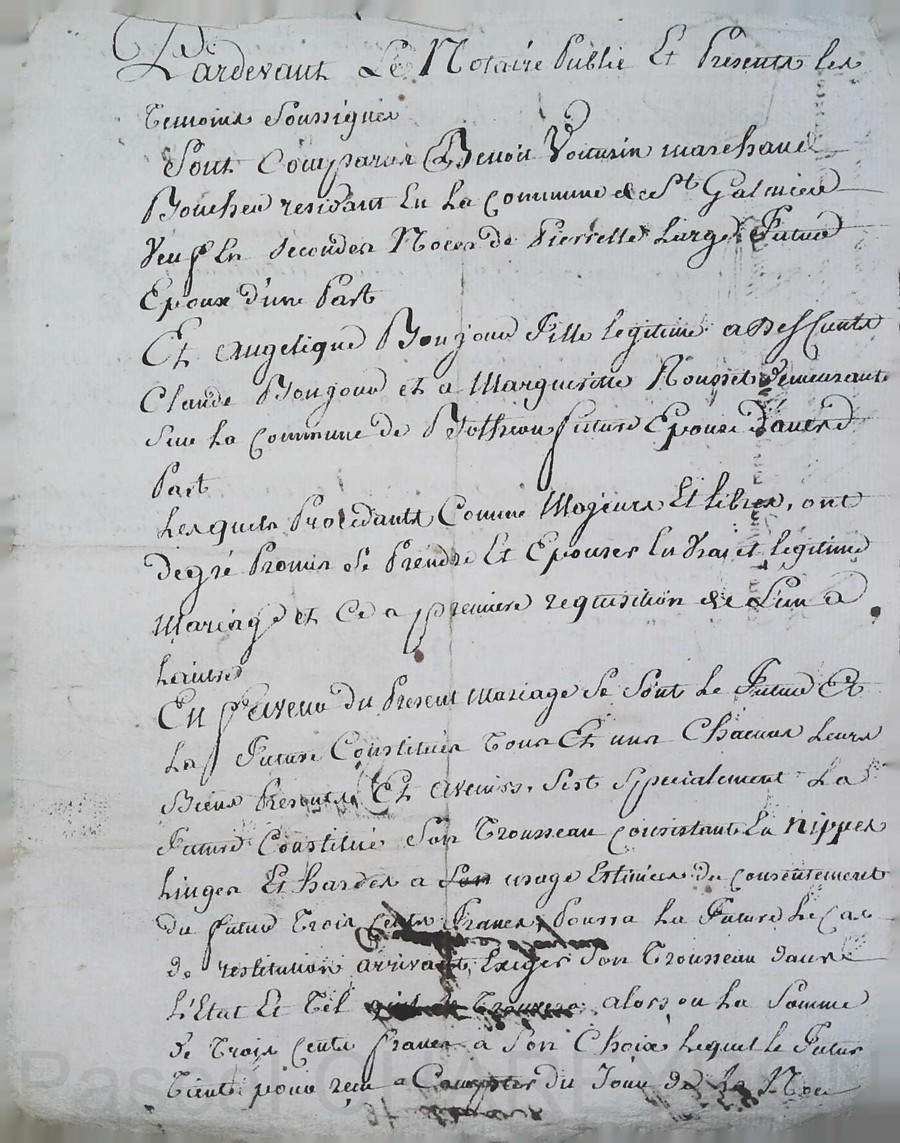 Pardevant Le Notaire Public Et Presents les
temoins Soussignes
Sont Comparus Benoit Voiturin marchand
Boucher residant En La Commune de St Galmier
Veuf En Secondes Noces de Pierrette Large Futur
Epoux d'une Part
Et Angelique Bonjour Fille legitime a Deffunts
Claude Bonjour et a Margueritte Rousset demeurante
Sur La Commune de Botheon future Epouse d'autre
Part
Lesquels Procedants Comme Majeurs Et libres, ont
de gré Promis de Prendre Et Epouser En Vrai et legitime
Mariage et Ce a premiere requisition de L'un a
Lautre
En faveur du Present mariage Se Sont Le Futur Et
La Future Constitués Tous Et uns Chacuns Leurs
Biens Presents Et avenirs, Sest Specialement La
Future Constitué Son Trousseau consistant En nippes
Linges Et hardes a Son usage Estimées du consentement
du futur Trois Cents Francs, Pourra La Future Le Cas
de restitution arrivant, Exiger Son Trousseau dans
L'Etat Et Tel alors ou La Somme
de Trois Cents francs a Son Choix Lequel Le Futur
Tient pour reçu a Compter du Jour de La Noce
Pascal